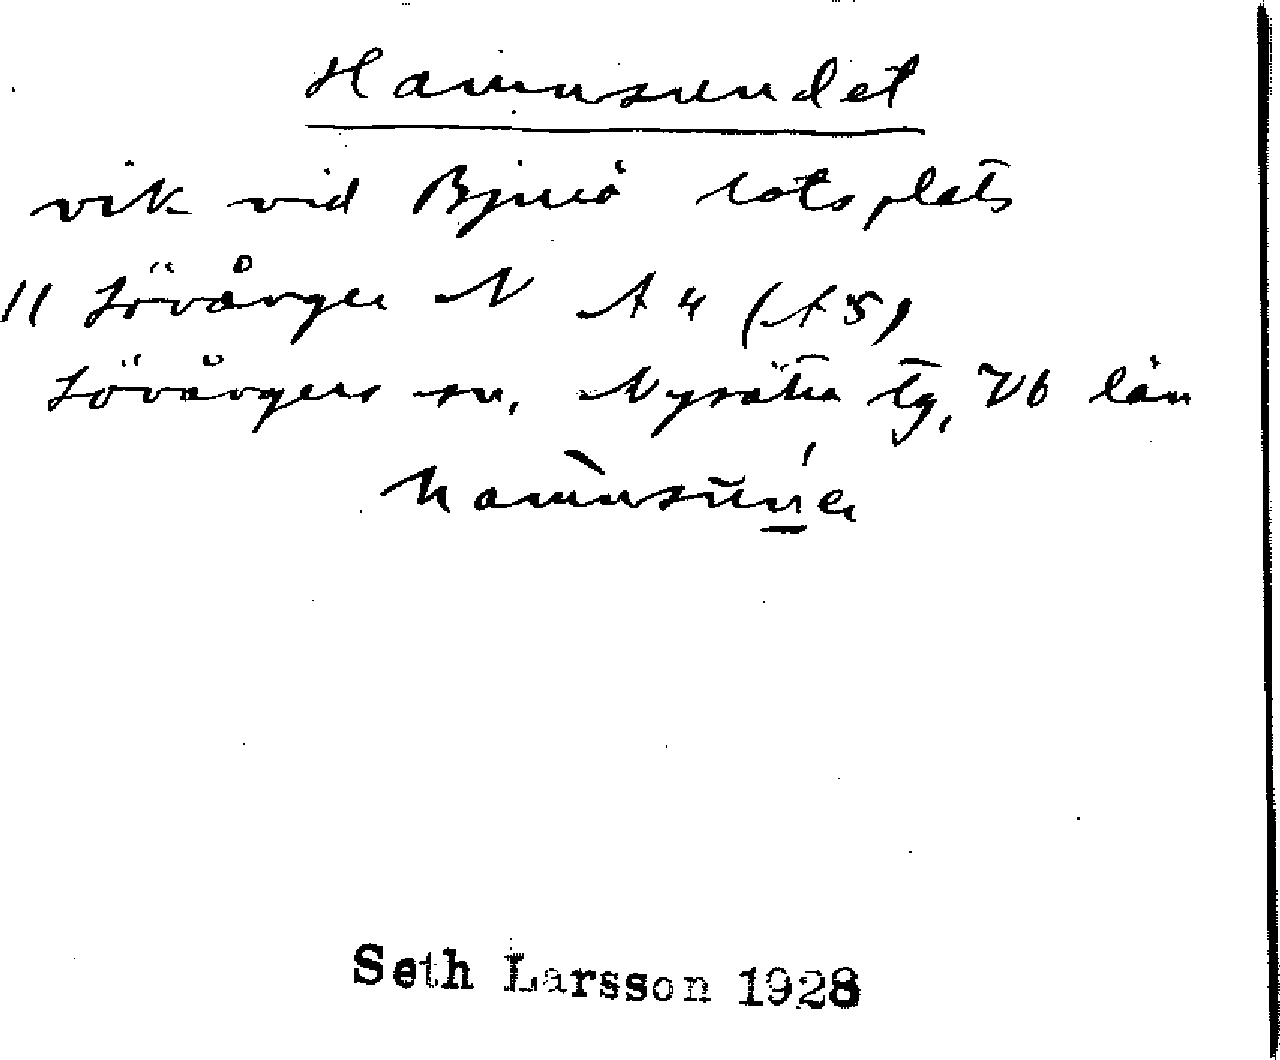 Hamnsundet
vik vid Bjurö lotsplats
11 Lövånger N A 4 (A 5)
Lövångers sn, Nysätra tg, Vb län
Seth Larsson 1928